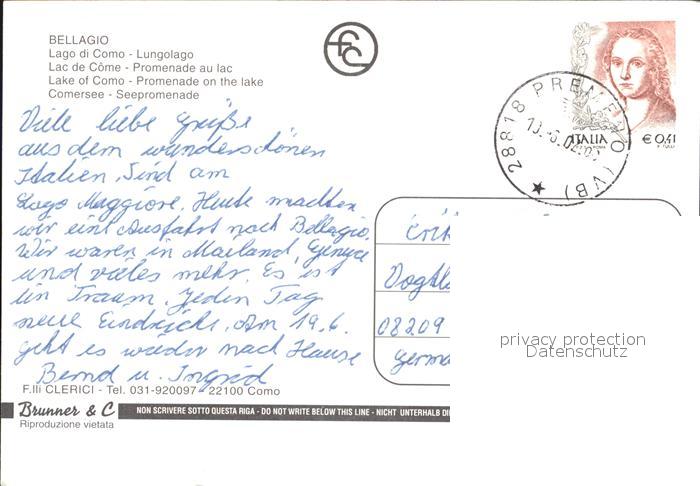 BELLAGIO
Lago di Como - Lungolago
Lac de Côme - Promenade au lac
Lake of Como - Promenade on the lake
Comersee - Seepromenade
Viele liebe Grüße
aus dem wunderschönen
Italien. Sind am
Lago Maggiore. Heute machten
wir eine Ausfahrt nach Bellagio.
Wir waren in Mailand,
und vieles mehr. Es ist
ein Traum. Jeden Tag
neue Eindrücke. Am 19.6.
geht es wieder nach Hause
Bernd u. Ingrid
F.lli CLERICI - Tel. 031-920097 - 22100 Como
Brunner & C
Riproduzione vietata
NON SCRIVERE SOTTO QUESTA RIGA - DO NOT WRITE BELOW THIS LINE - NICHT UNTERHALB DI
28818 PREMENO (VB)
ITALIA
€ 0,41
08209
privacy protection
Datenschutz